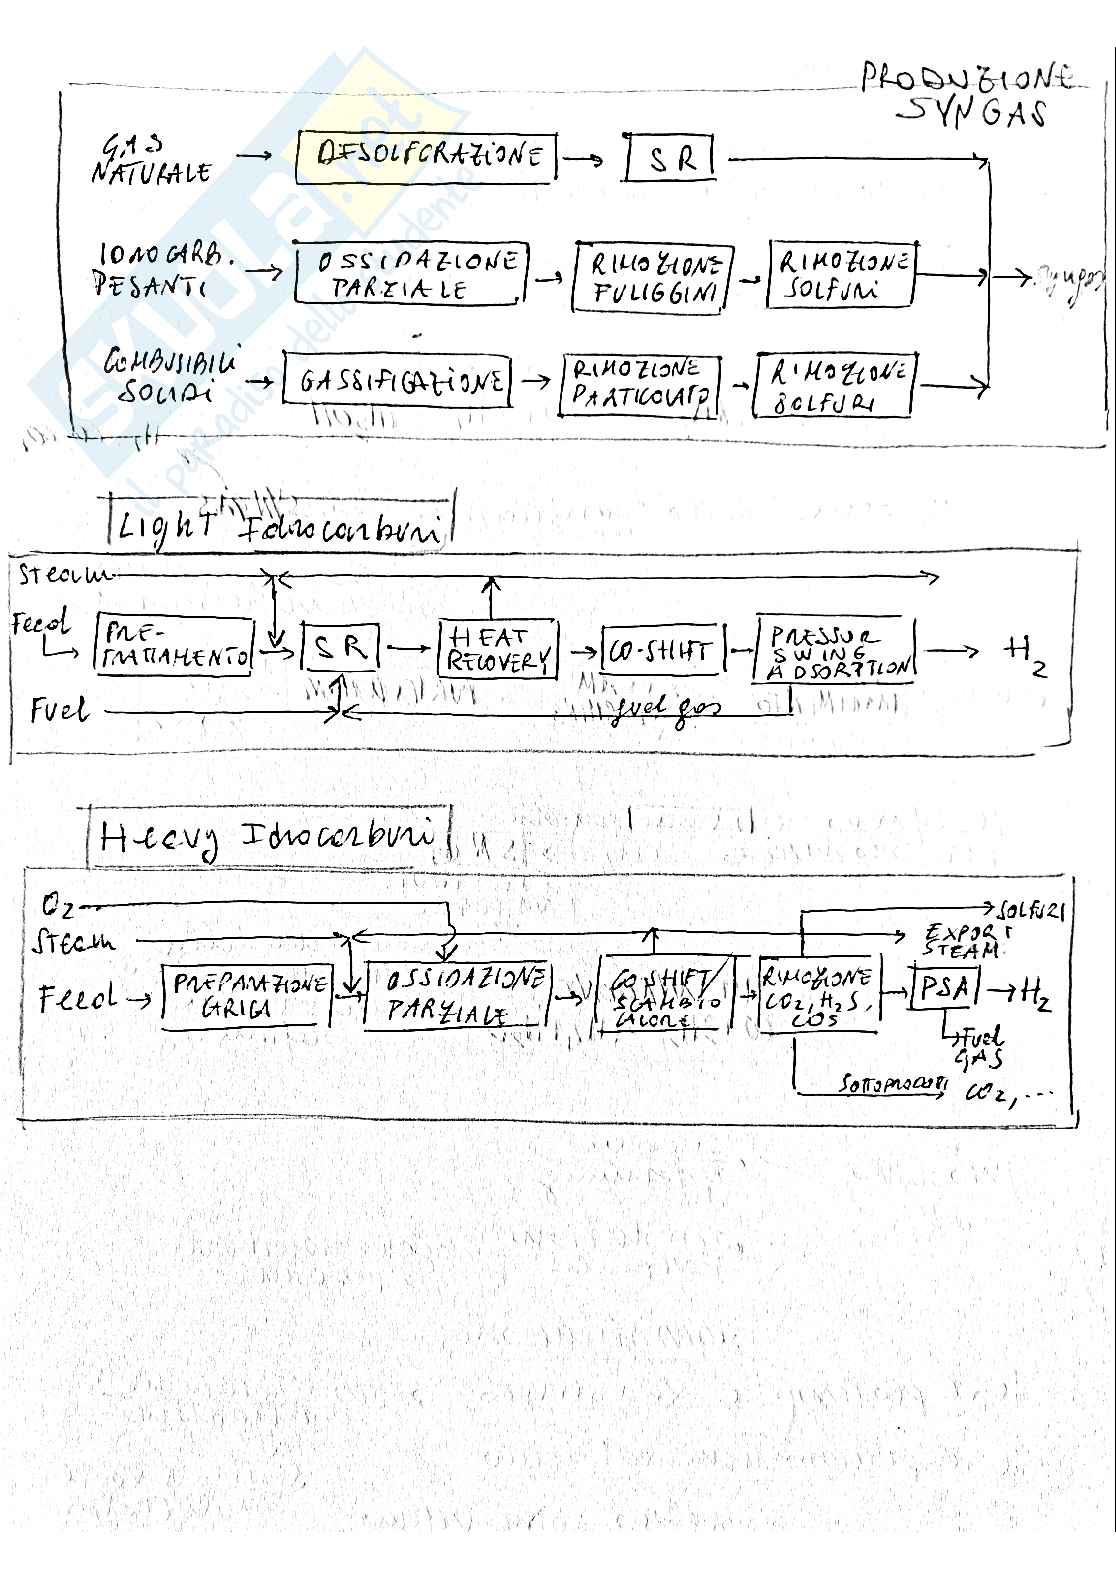 PRODUZIONE
SYNGAS
GAS
NATURALE
DESOLFORAZIONE
SR
IDROCARB.
PESANTI
OSSIDAZIONE
PARZIALE
RIMOZIONE
FULIGGINI
RIMOZIONE
SOLFURI
syngas
COMBUSIBILI
SOLIDI
GASSIFICAZIONE
RIMOZIONE
PARTICOLATO
RIMOZIONE
SOLFURI
Light Idrocarburi
Steam
Feed
PRE-
TRATTAMENTO
SR
HEAT
RECOVERY
CO-SHIFT
PRESSUR
SWING
ADSORPTION
H2
Fuel
fuel gas
Heavy Idrocarburi
O2
SOLFURI
Steam
EXPORT
STEAM
Feed
PREPARAZIONE
CARICA
OSSIDAZIONE
PARZIALE
CO-SHIFT/
SCAMBIO
CALORE
RIMOZIONE
CO2, H2S,
COS
PSA
H2
Fuel
GAS
SOTTOPRODOTTI
CO2, ...
SKUOLA.net
il paradiso dello studente